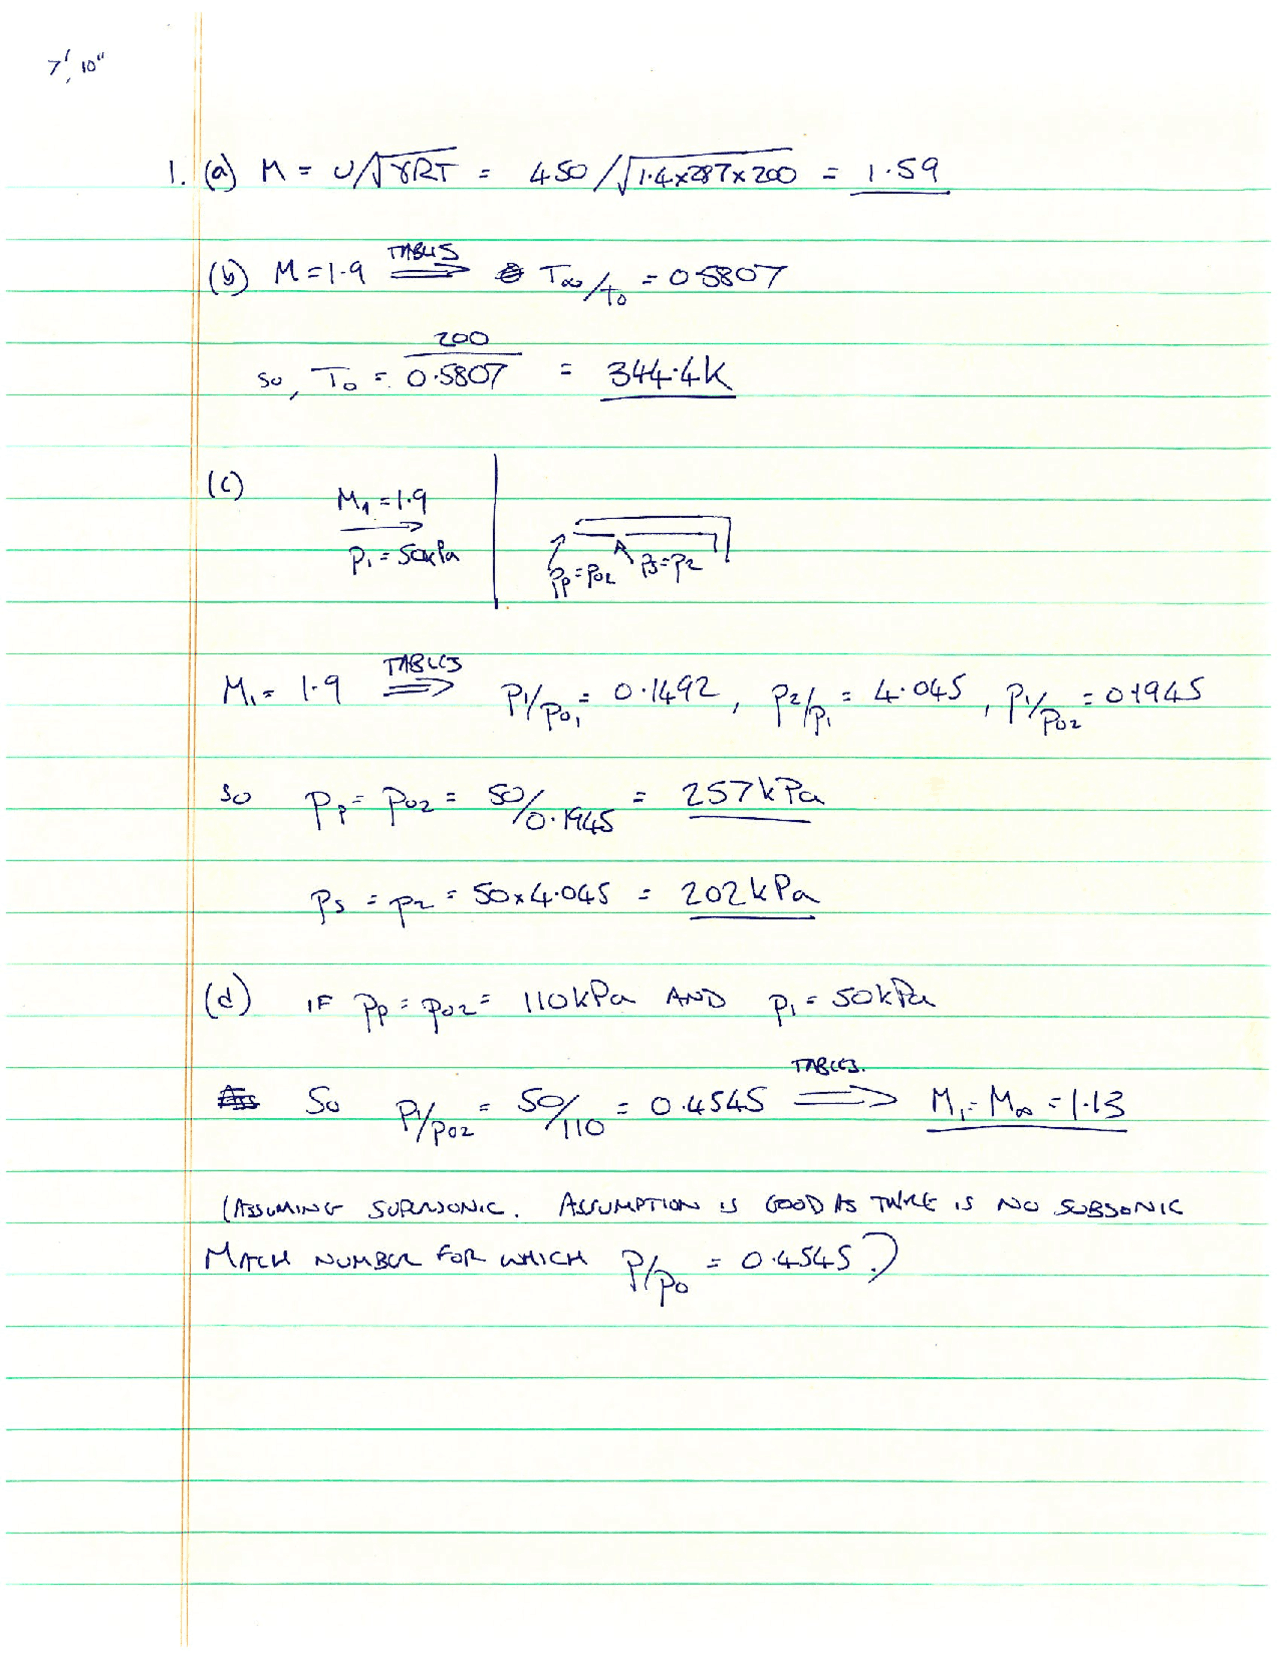 7', 10"
1. (a) M = U/√γRT = 450/√1.4×287×200 = 1.59
(b) M=1.9 TABLES ⟹ T∞/T0 = 0.5807
so, T0 = 200/0.5807 = 344.4K
(c)
M1 = 1.9
p1 = 50kPa
pp = p02 ps = p2
M1 = 1.9 TABLES ⟹ p1/p01 = 0.1492, p2/p1 = 4.045, p1/p02 = 0.1945
so pp = p02 = 50/0.1945 = 257kPa
ps = p2 = 50×4.045 = 202kPa
(d) IF pp = p02 = 110kPa AND p1 = 50kPa
So p1/p02 = 50/110 = 0.4545 TABLES. ⟹ M1 = M∞ = 1.13
(ASSUMING SUPERSONIC. ASSUMPTION IS GOOD AS THERE IS NO SUBSONIC
MACH NUMBER FOR WHICH p/p0 = 0.4545.)